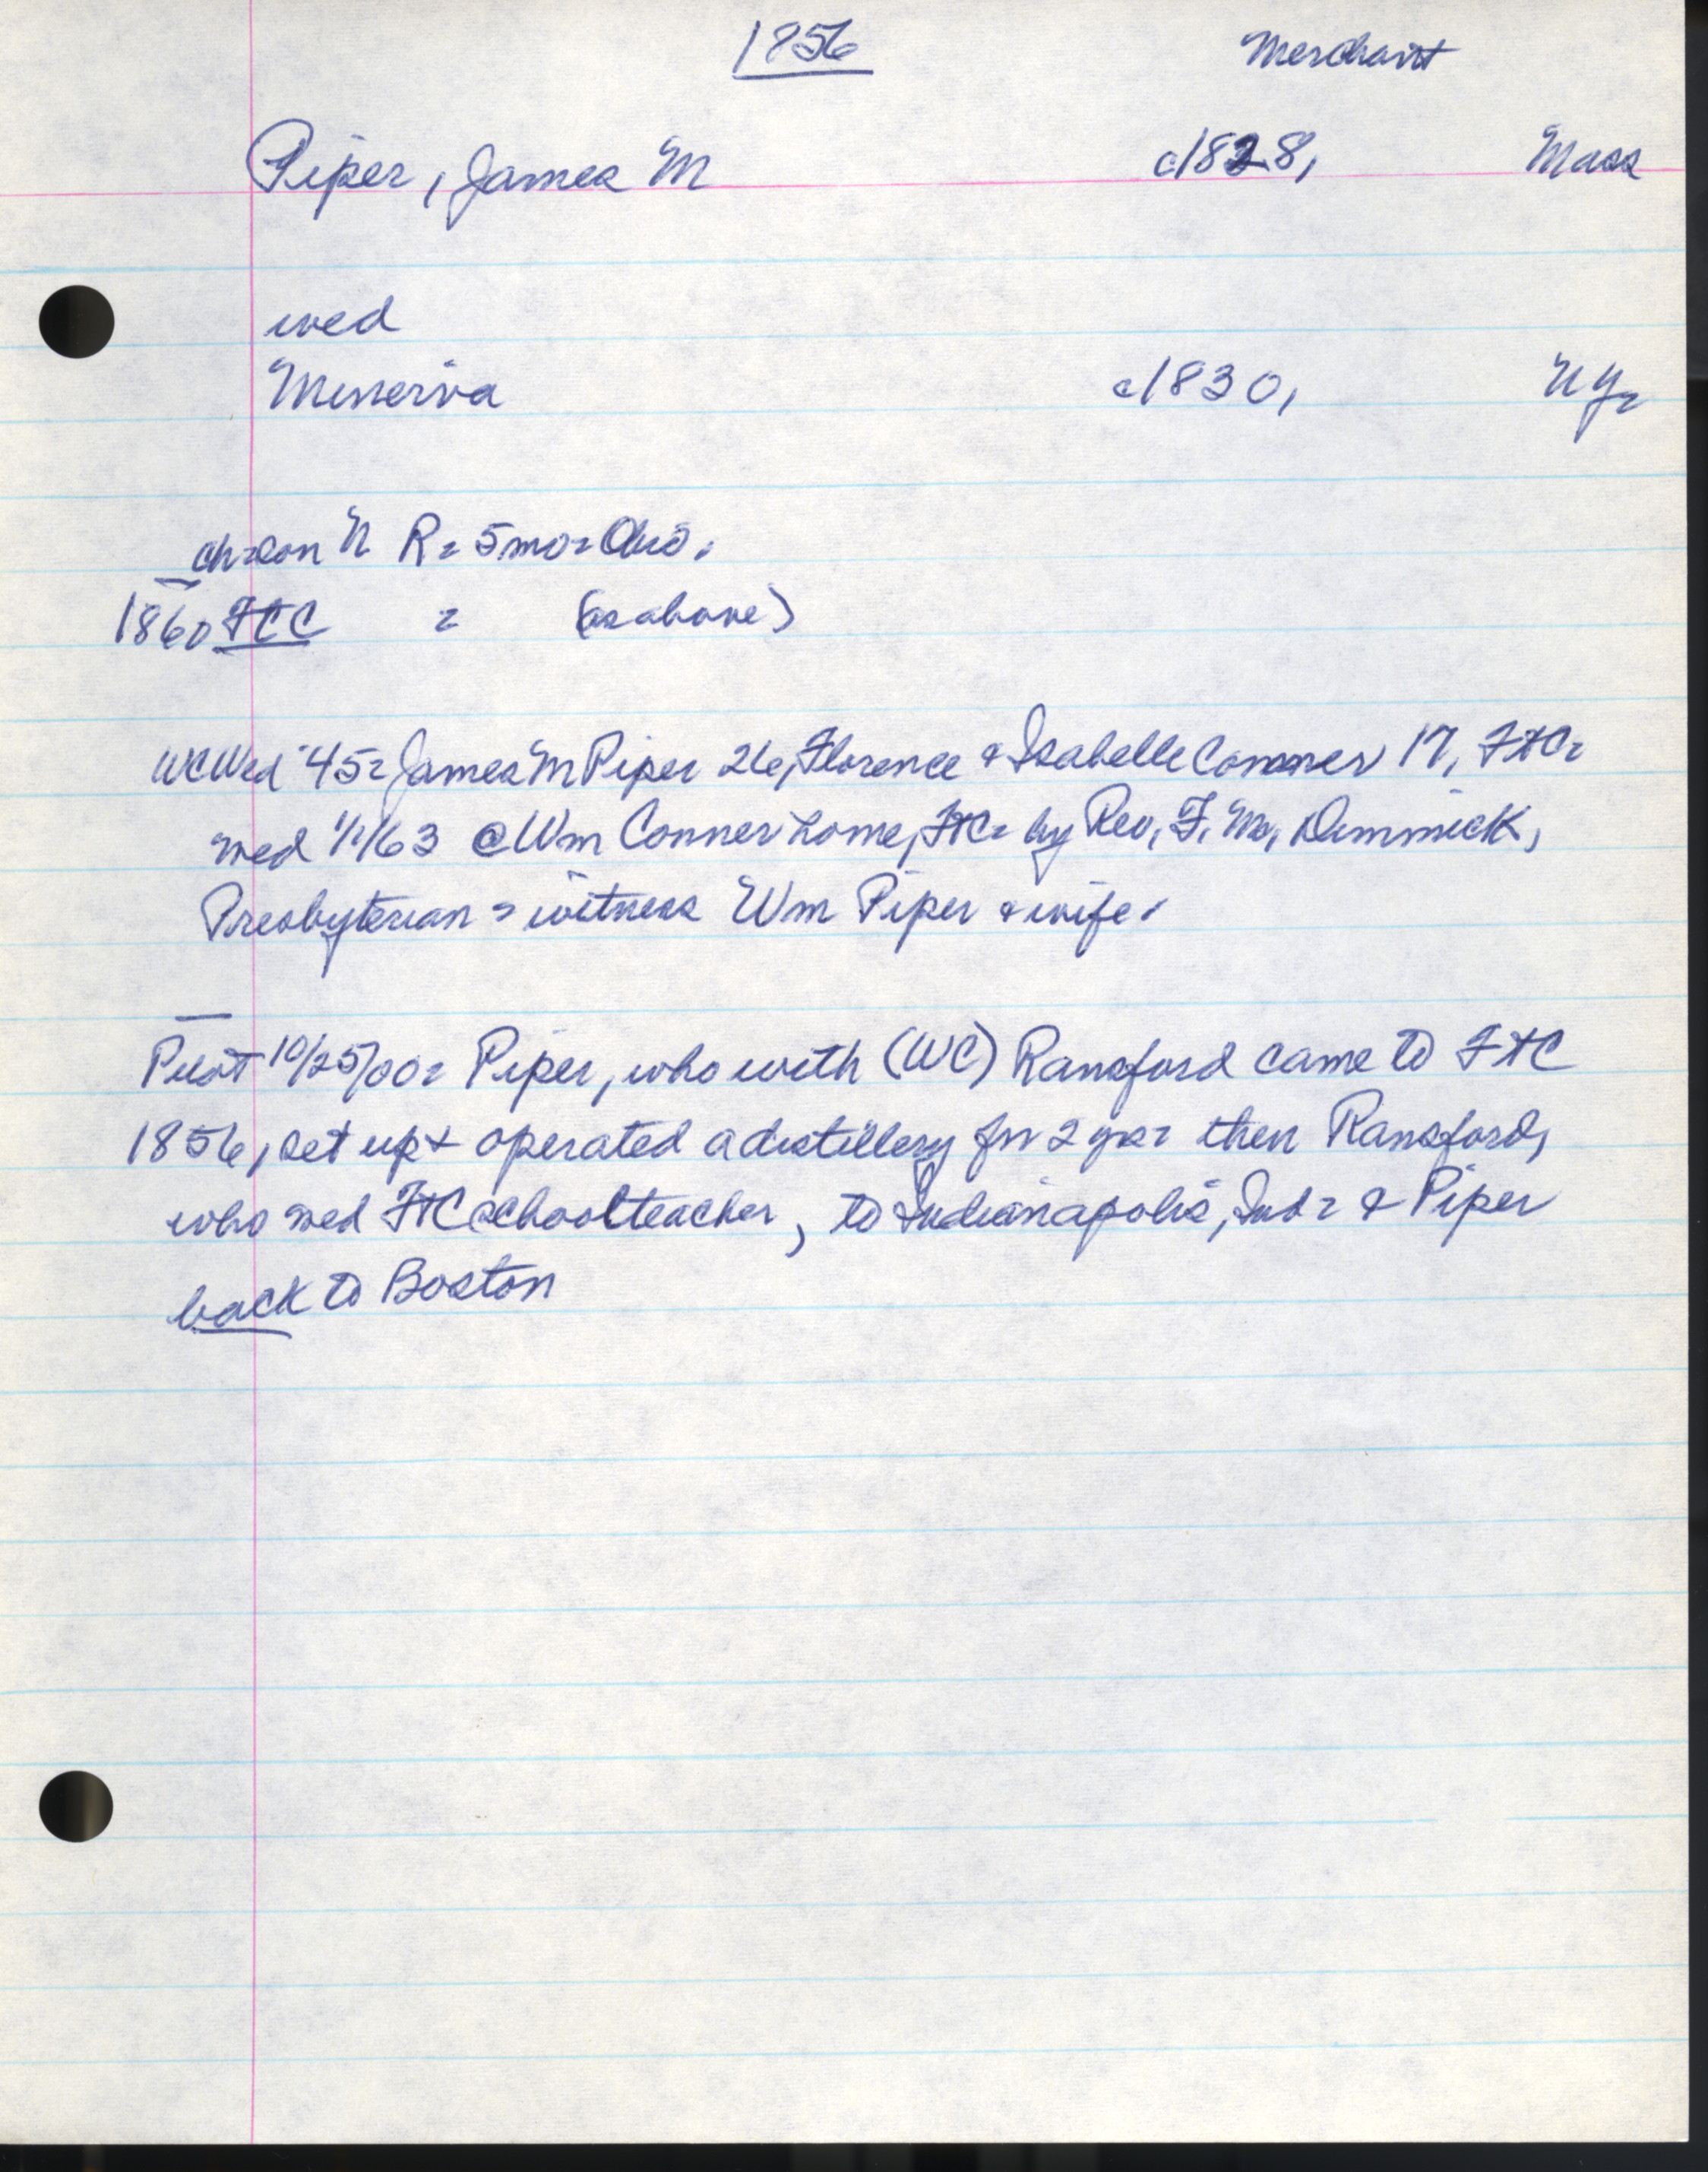 1856
Merchant
Piper, James M c1828, Mass
wed
Minerva c1830, NY-
ch-son N R- 5mo- Ohio.
1860 FtC - (as above)
WCWed '45- James M Piper 26, Florence & Isabelle Conner 17, FtC-
wed 1/1/63 @ Wm Conner home, FtC- by Rev. F. M. Dimmick,
Presbyterian - witness Wm Piper & wife.
Pilot 10/25/00- Piper, who with (WC) Ransford came to FtC
1856, set up & operated a distillery for 2 yrs- then Ransford,
who wed FtC schoolteacher, to Indianapolis, Ind- & Piper
back to Boston